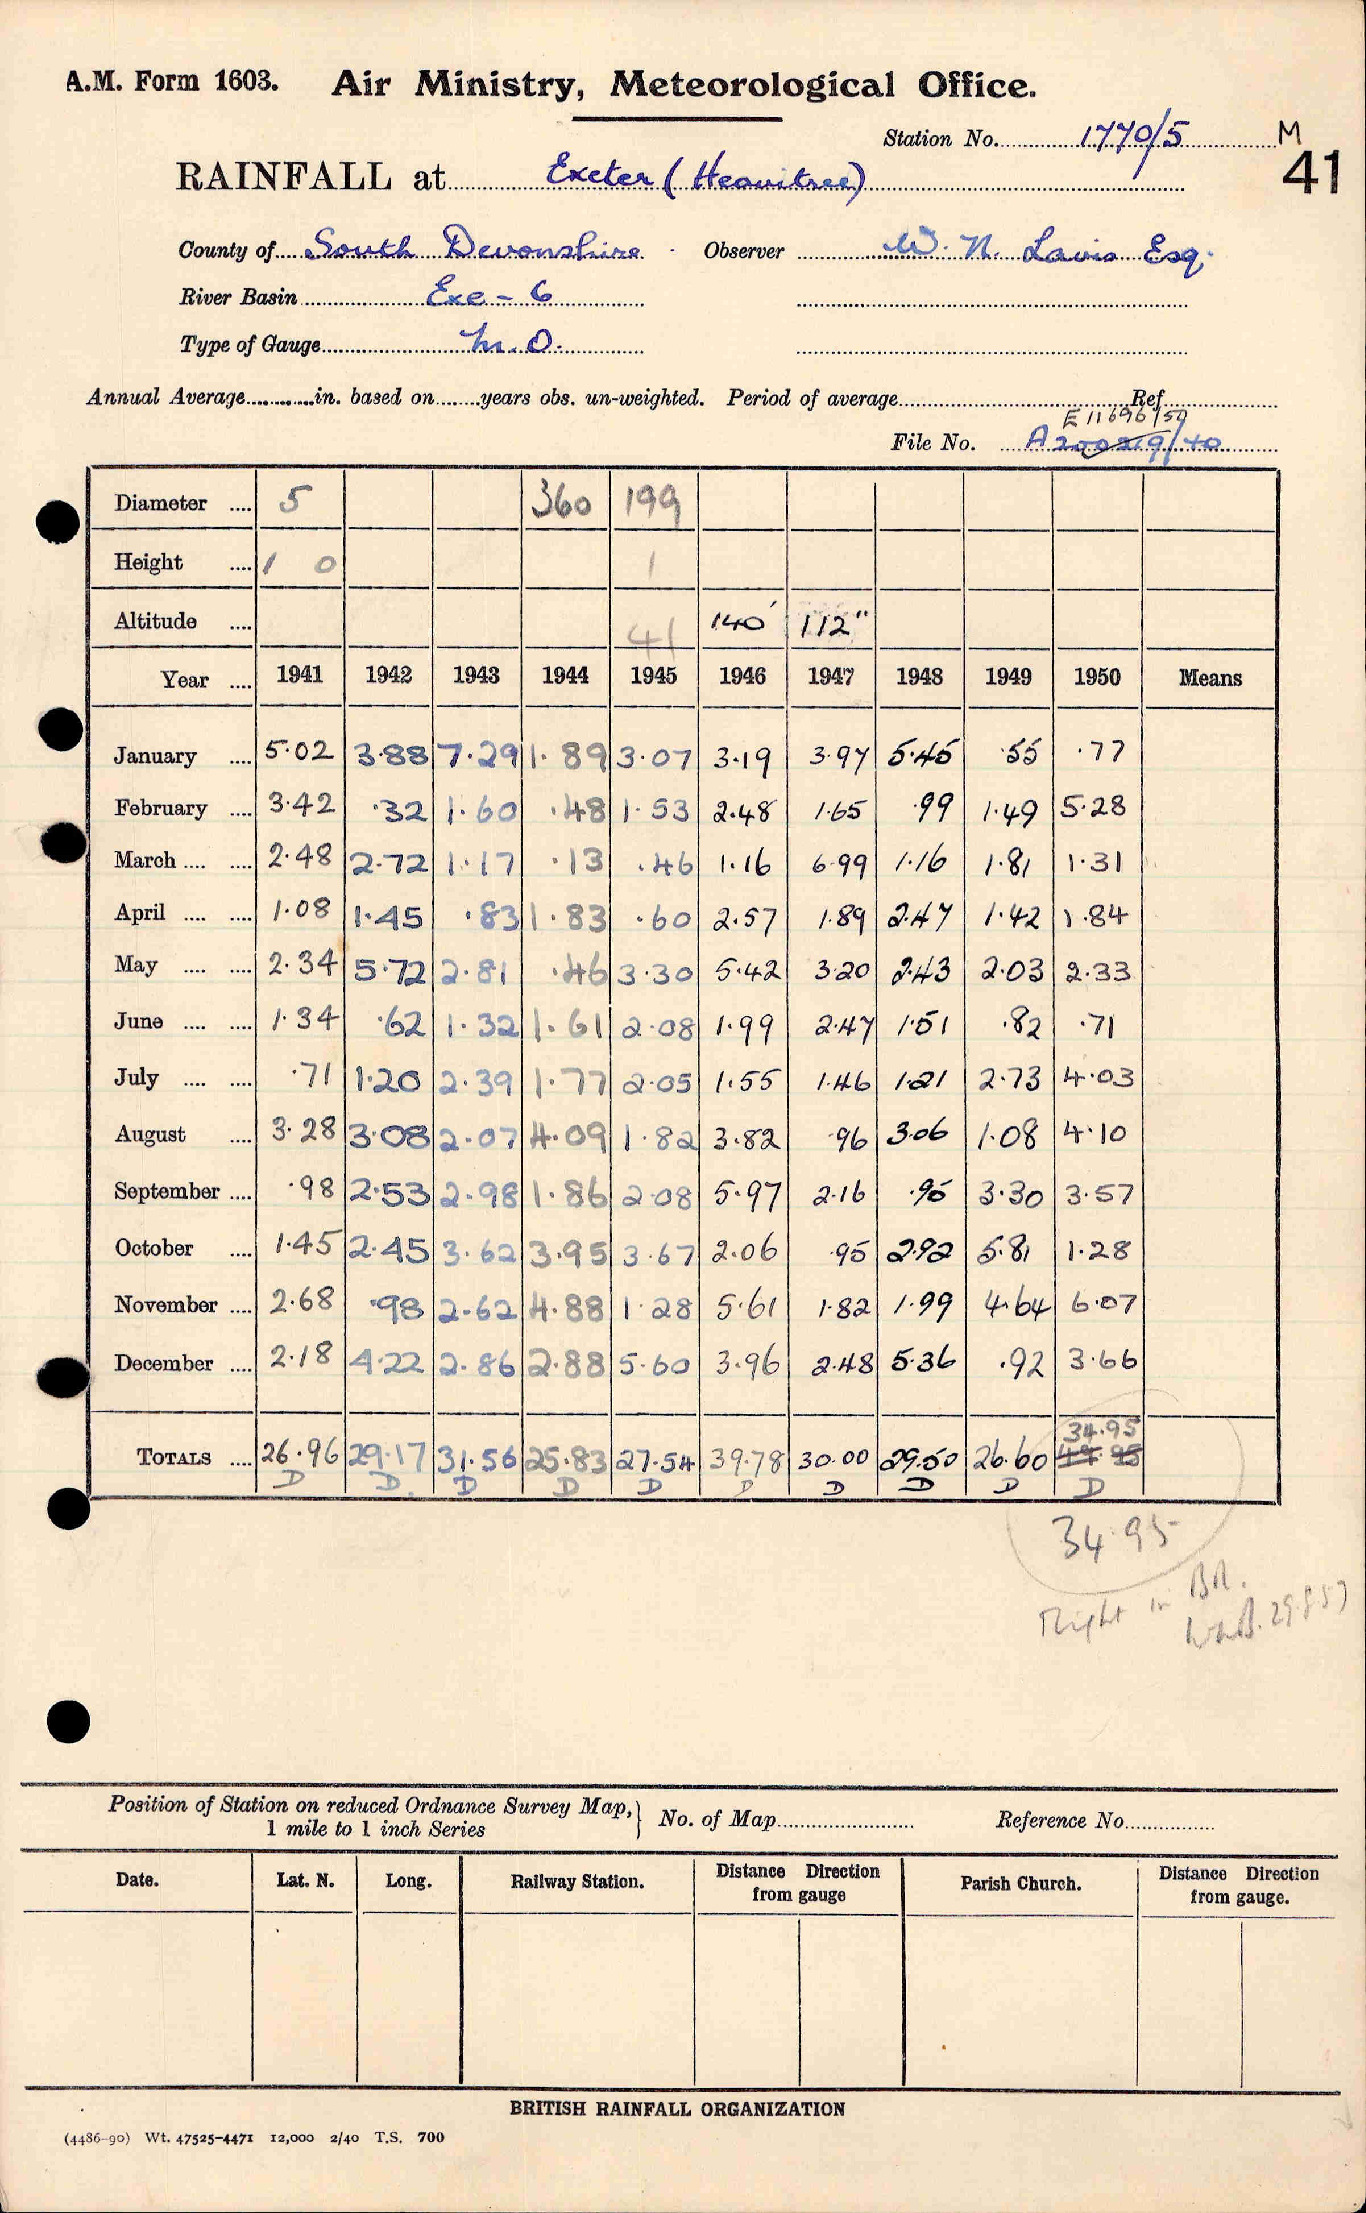 A.M. Form 1603. Air Ministry, Meteorological Office.
Station No. 1770/5 M
RAINFALL at Exeter (Heavitree) 41
County of South Devonshire Observer W. N. Lavis Esq.
River Basin Exe - 6
Type of Gauge M.O.
Annual Average in. based on years obs. un-weighted. Period of average Ref.
E 11696/50
File No. A200219/40
Diameter .... 5 360 199
Height .... 1 0 1
Altitude .... 41 140' 112"
Year .... 1941 1942 1943 1944 1945 1946 1947 1948 1949 1950 Means
January .... 5.02 3.88 7.29 1.89 3.07 3.19 3.97 5.45 .55 .77
February .... 3.42 .32 1.60 .48 1.53 2.48 1.65 .99 1.49 5.28
March .... .... 2.48 2.72 1.17 .13 .46 1.16 6.99 1.16 1.81 1.31
April .... .... 1.08 1.45 .83 1.83 .60 2.57 1.89 2.47 1.42 1.84
May .... .... 2.34 5.72 2.81 .46 3.30 5.42 3.20 2.43 2.03 2.33
June .... .... 1.34 .62 1.32 1.61 2.08 1.99 2.47 1.51 .82 .71
July .... .... .71 1.20 2.39 1.77 2.05 1.55 1.46 1.21 2.73 4.03
August .... 3.28 3.08 2.07 4.09 1.82 3.82 .96 3.06 1.08 4.10
September .... .98 2.53 2.98 1.86 2.08 5.97 2.16 .95 3.30 3.57
October .... 1.45 2.45 3.62 3.95 3.67 2.06 .95 2.92 5.81 1.28
November .... 2.68 .98 2.62 4.88 1.28 5.61 1.82 1.99 4.64 6.07
December .... 2.18 4.22 2.86 2.88 5.60 3.96 2.48 5.36 .92 3.66
34.95
TOTALS .... 26.96 29.17 31.56 25.83 27.54 39.78 30.00 29.50 26.60
D D. D D D D D D D D
34.95
Right in BR.
29.8.57
Position of Station on reduced Ordnance Survey Map, } No. of Map Reference No.
1 mile to 1 inch Series
Date. Lat. N. Long. Railway Station. Distance Direction from gauge Parish Church. Distance Direction from gauge.
BRITISH RAINFALL ORGANIZATION
(4486-90) Wt. 47525-4471 12,000 2/40 T.S. 700